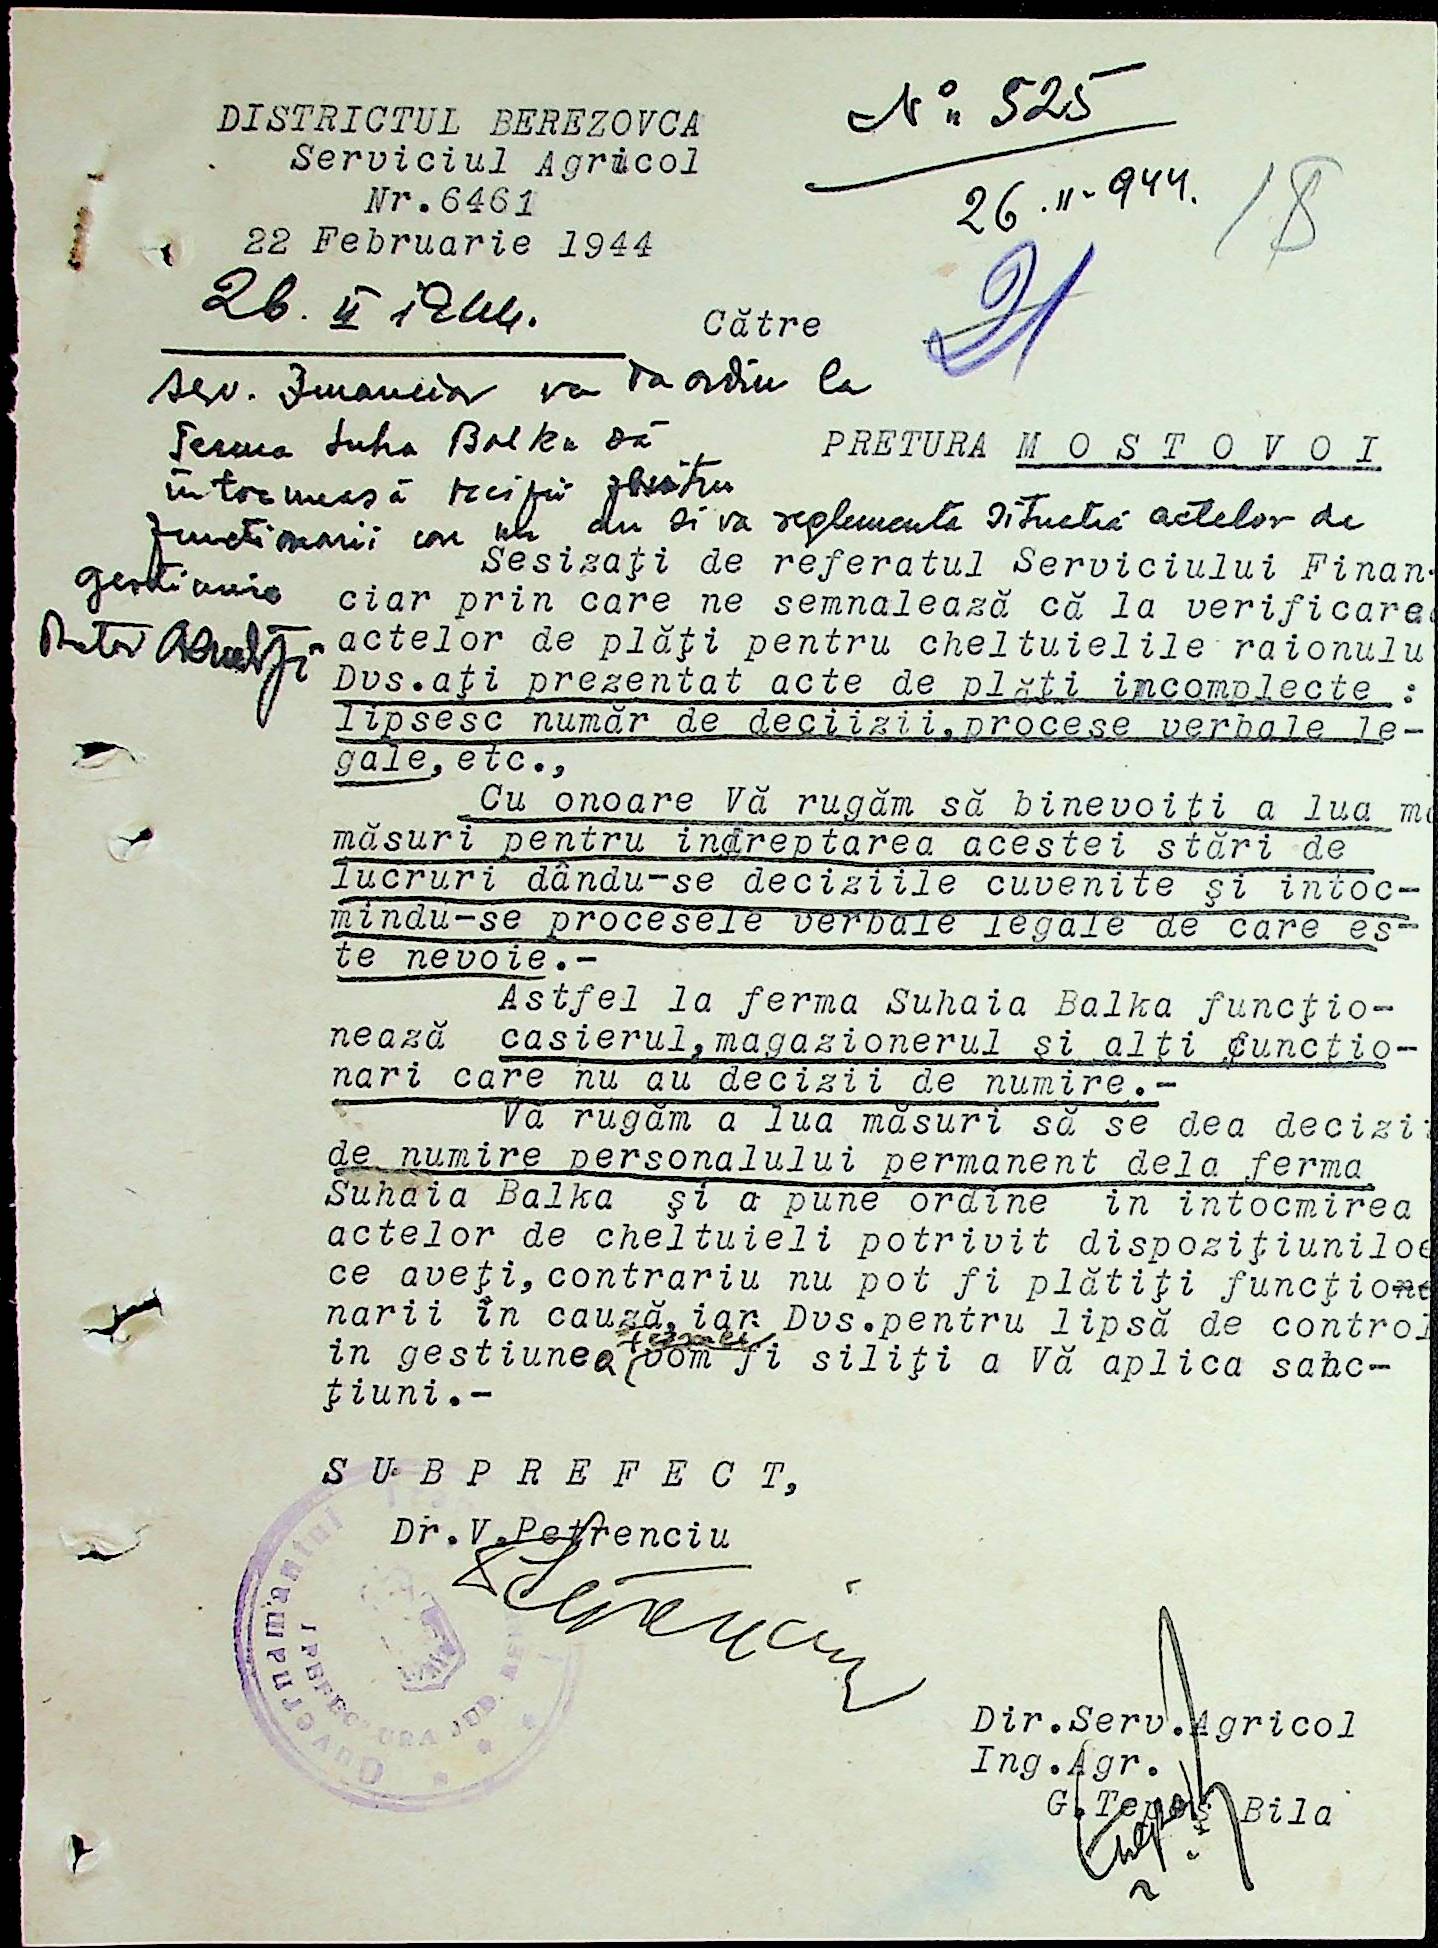 DISTRICTUL BEREZOVCA
Serviciul Agricol
Nr.6461
22 Februarie 1944
No 525
26.II-944.
18
21
26. II 1944.
Către
Serv. Financiar va da ordin la
Ferma Suha Balka să
PRETURA M O S T O V O I
întocmească
funcționarii care nu au și va reglementa situația actelor de
gestiune
Pretor
Sesizaţi de referatul Serviciului Finan-
ciar prin care ne semnalează că la verificarea
actelor de plăţi pentru cheltuielile raionulu
Dvs.aţi prezentat acte de plăti incomplecte :
lipsesc număr de deciizii,procese verbale le-
gale,etc.,
Cu onoare Vă rugăm să binevoiţi a lua mă
măsuri pentru indreptarea acestei stări de
lucruri dându-se deciziile cuvenite şi intoc-
mindu-se procesele verbale legale de care es-
te nevoie.-
Astfel la ferma Suhaia Balka funcţio-
nează casierul,magazionerul si alţi funcţio-
nari care nu au decizii de numire.-
Vă rugăm a lua măsuri să se dea decizii
de numire personalului permanent dela ferma
Suhaia Balka şi a pune ordine in intocmirea
actelor de cheltuieli potrivit dispoziţiuniloe
ce aveţi,contrariu nu pot fi plătiţi funcţione
narii în cauză,iar Dvs.pentru lipsă de control
fermei
in gestiunea vom fi siliţi a Vă aplica sanc-
ţiuni.-
S U B P R E F E C T,
Dr.V.Petrenciu
Petrenciu
Guvernământul
PREFECTURA JUD. BER
Dir.Serv.Agricol
Ing.Agr.
G.Tepeş Bila